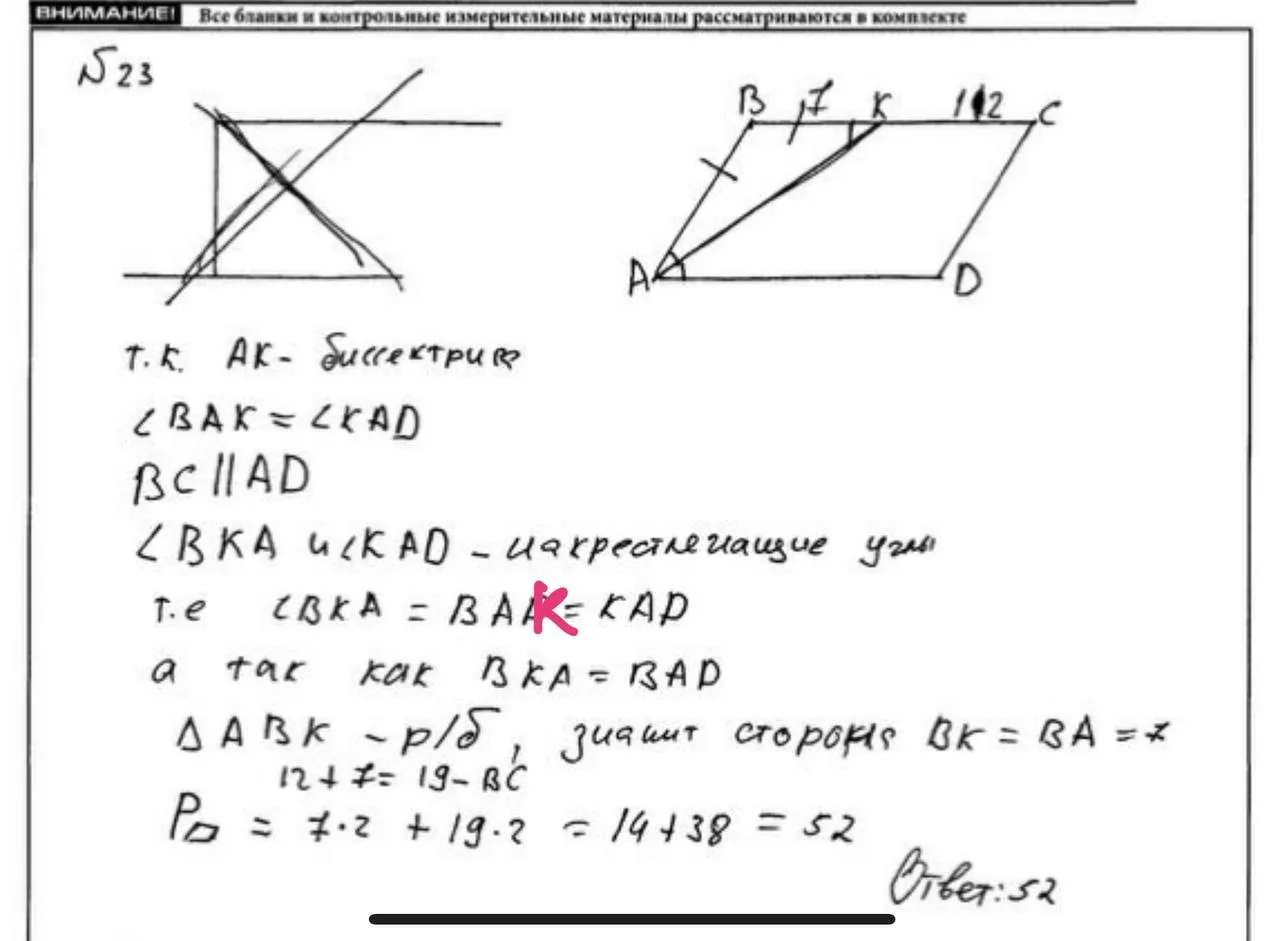 ВНИМАНИЕ! Все бланки и контрольные измерительные материалы рассматриваются в комплекте
№23
B 7 K 12 C
A D
т.к. AK - биссектриса
∠BAK = ∠KAD
BC || AD
∠BKA и ∠KAD - накрестлежащие углы
т.е ∠BKA = BAK = KAD
а так как BKA = BAD
Δ ABK - р/б, значит стороны BK = BA = 7
12 + 7 = 19 - BC
P▱ = 7·2 + 19·2 = 14 + 38 = 52
Ответ: 52